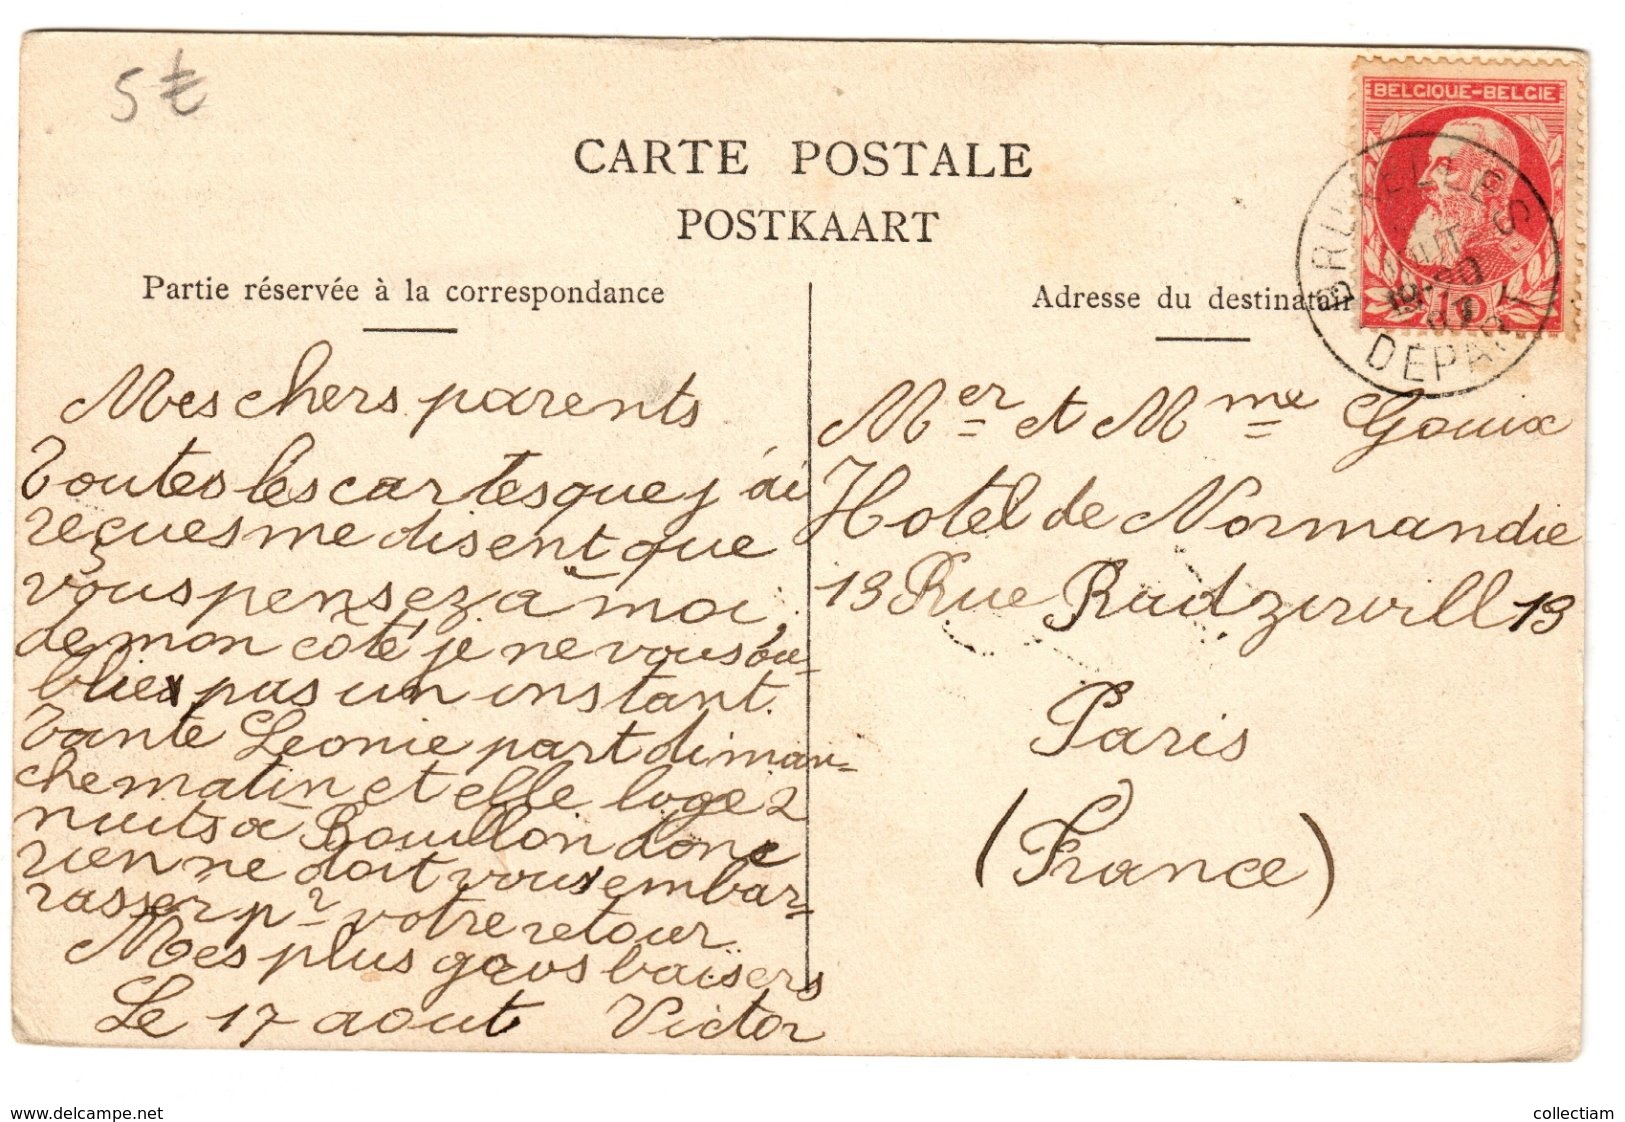 5 €
CARTE POSTALE
POSTKAART
BELGIQUE-BELGIE
BRUXELLES
DEPART
Partie réservée à la correspondance
Adresse du destinatair
Mes chers parents
Toutes les cartes que j'ai
reçues me disent que
vous pensez à moi,
de mon côté je ne vous ou-
blie pas un instant.
Tante Leonie part diman=
che matin et elle loge 2
nuits à Bouillon donc
rien ne doit vous embar=
rasser pr votre retour
Mes plus gros baisers
Le 17 aout Victor
Mer et Mme Gouix
Hotel de Normandie
13 Rue Radziwill 13
Paris
(France)
www.delcampe.net
collectiam